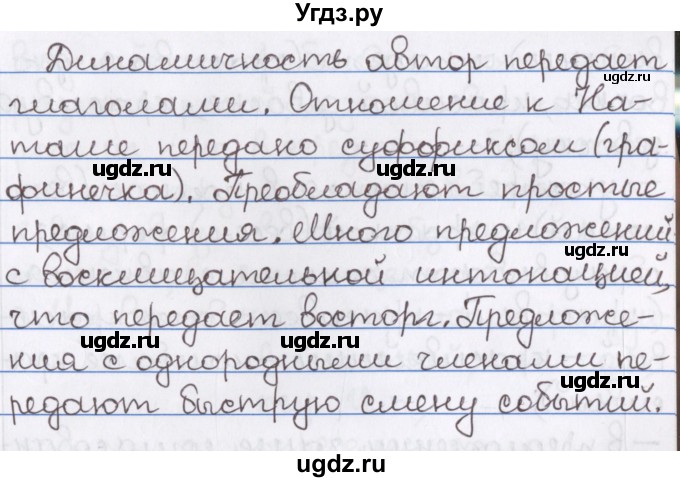 Угдз.ру
Динамичность автор передает
ugdz.ru
глаголами. Отношение к На-
таше передано суффиксом (гра-
ugdz.ru ugdz.ru
финечка). Преобладают простые
предложения. Много предложений
ugdz.ru
с восклицательной интонацией,
что передает восторг. Предложе-
ugdz.ru ugdz.ru
ния с однородными членами пе-
ugdz.ru
редают быструю смену событий.
ugdz.ru
ugdz.ru